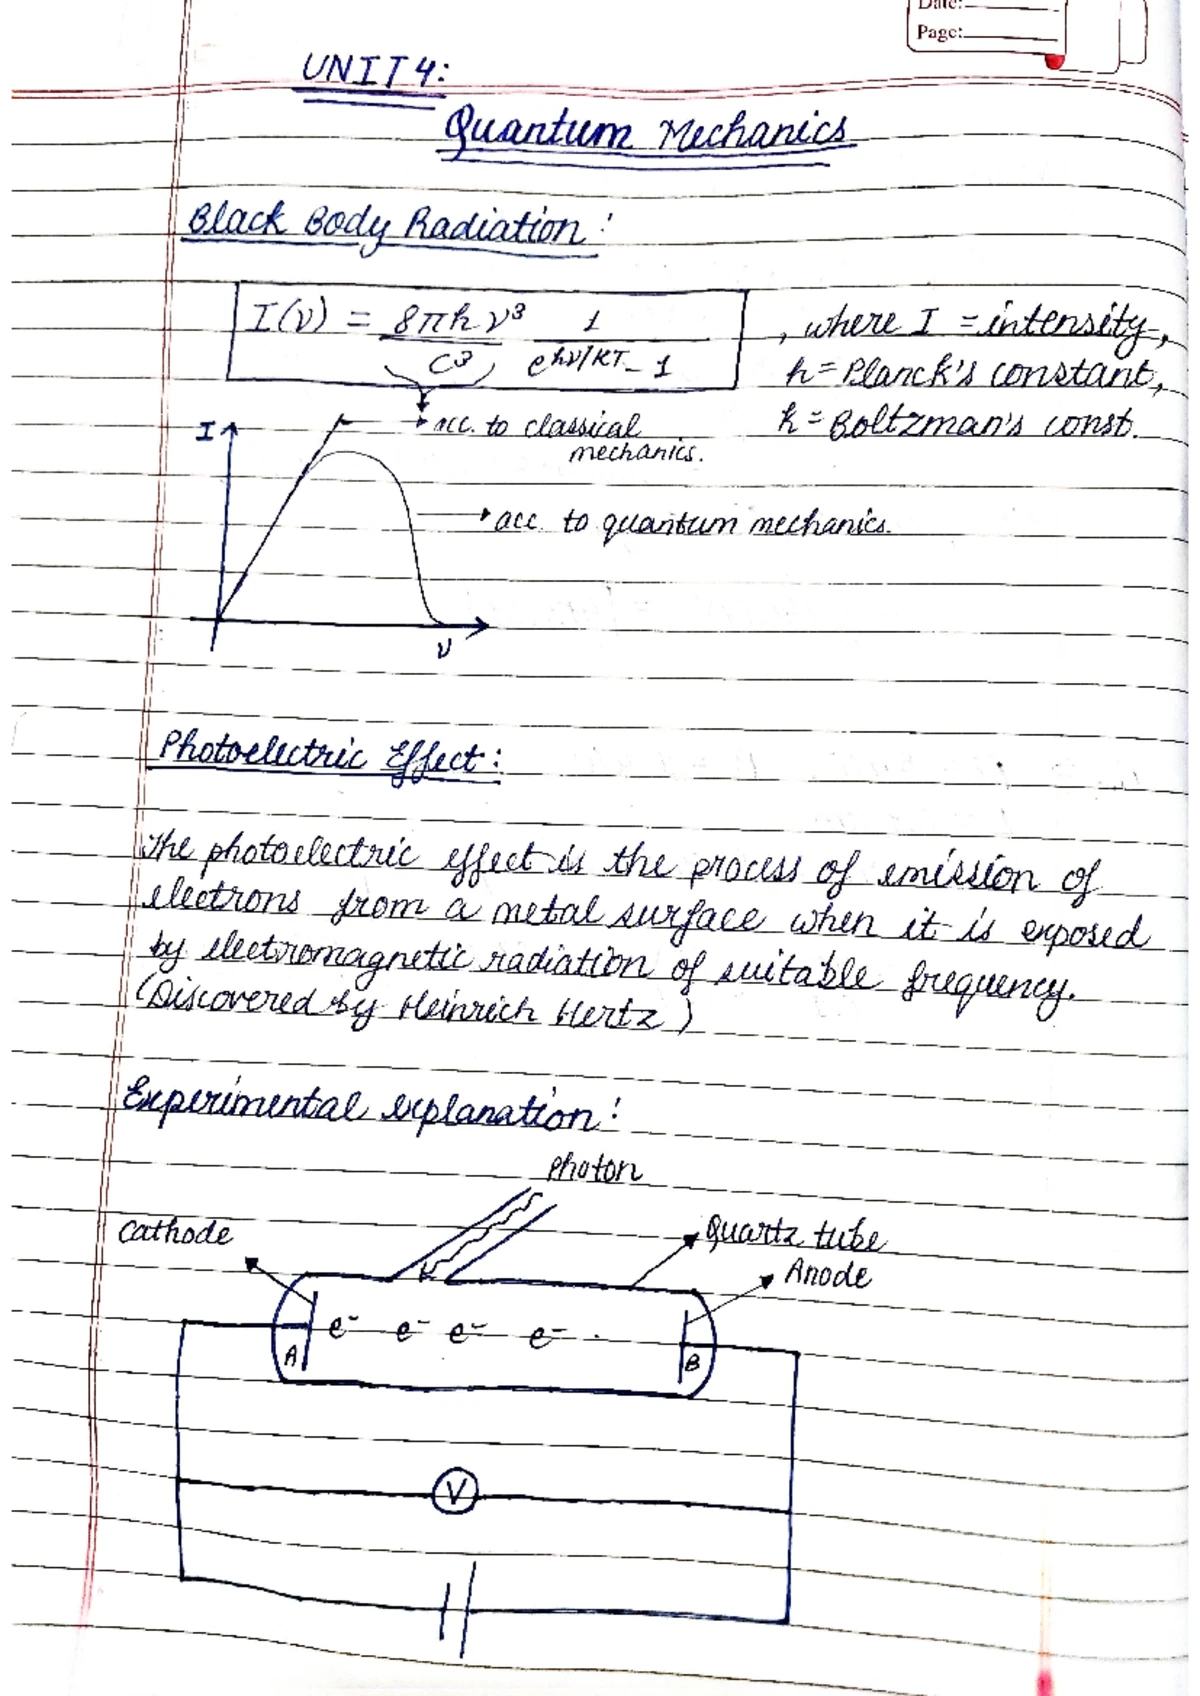 Date:
Page:
UNIT 4:
Quantum Mechanics
Black Body Radiation:
I(ν) = 8πhν³/c³ 1/e^hν/KT - 1 , where I = intensity,
h = Planck's constant,
k = Boltzman's const.
I
acc. to classical
mechanics.
acc. to quantum mechanics.
ν
Photoelectric Effect:
The photoelectric effect is the process of emission of
electrons from a metal surface when it is exposed
by electromagnetic radiation of suitable frequency.
(Discovered by Heinrich Hertz)
Experimental explanation:
Photon
Cathode
Quartz tube
Anode
e⁻ e⁻ e⁻ e⁻
A
B
V